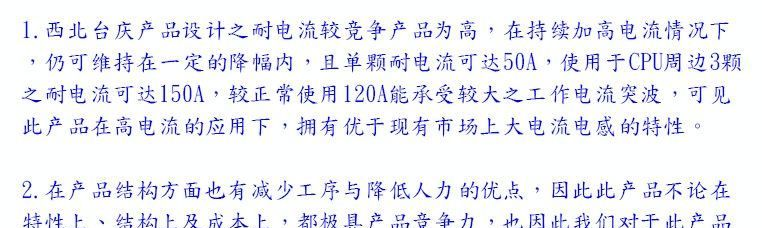 1.西北台庆产品设计之耐电流较竞争产品为高，在持续加高电流情况下
，仍可维持在一定的降幅内，且单颗耐电流可达50A，使用于CPU周边3颗
之耐电流可达150A，较正常使用120A能承受较大之工作电流突波，可见
此产品在高电流的应用下，拥有优于现有市场上大电流电感的特性。
2.在产品结构方面也有减少工序与降低人力的优点，因此此产品不论在
特性上、结构上及成本上，都极具产品竞争力，也因此我们对于此产品